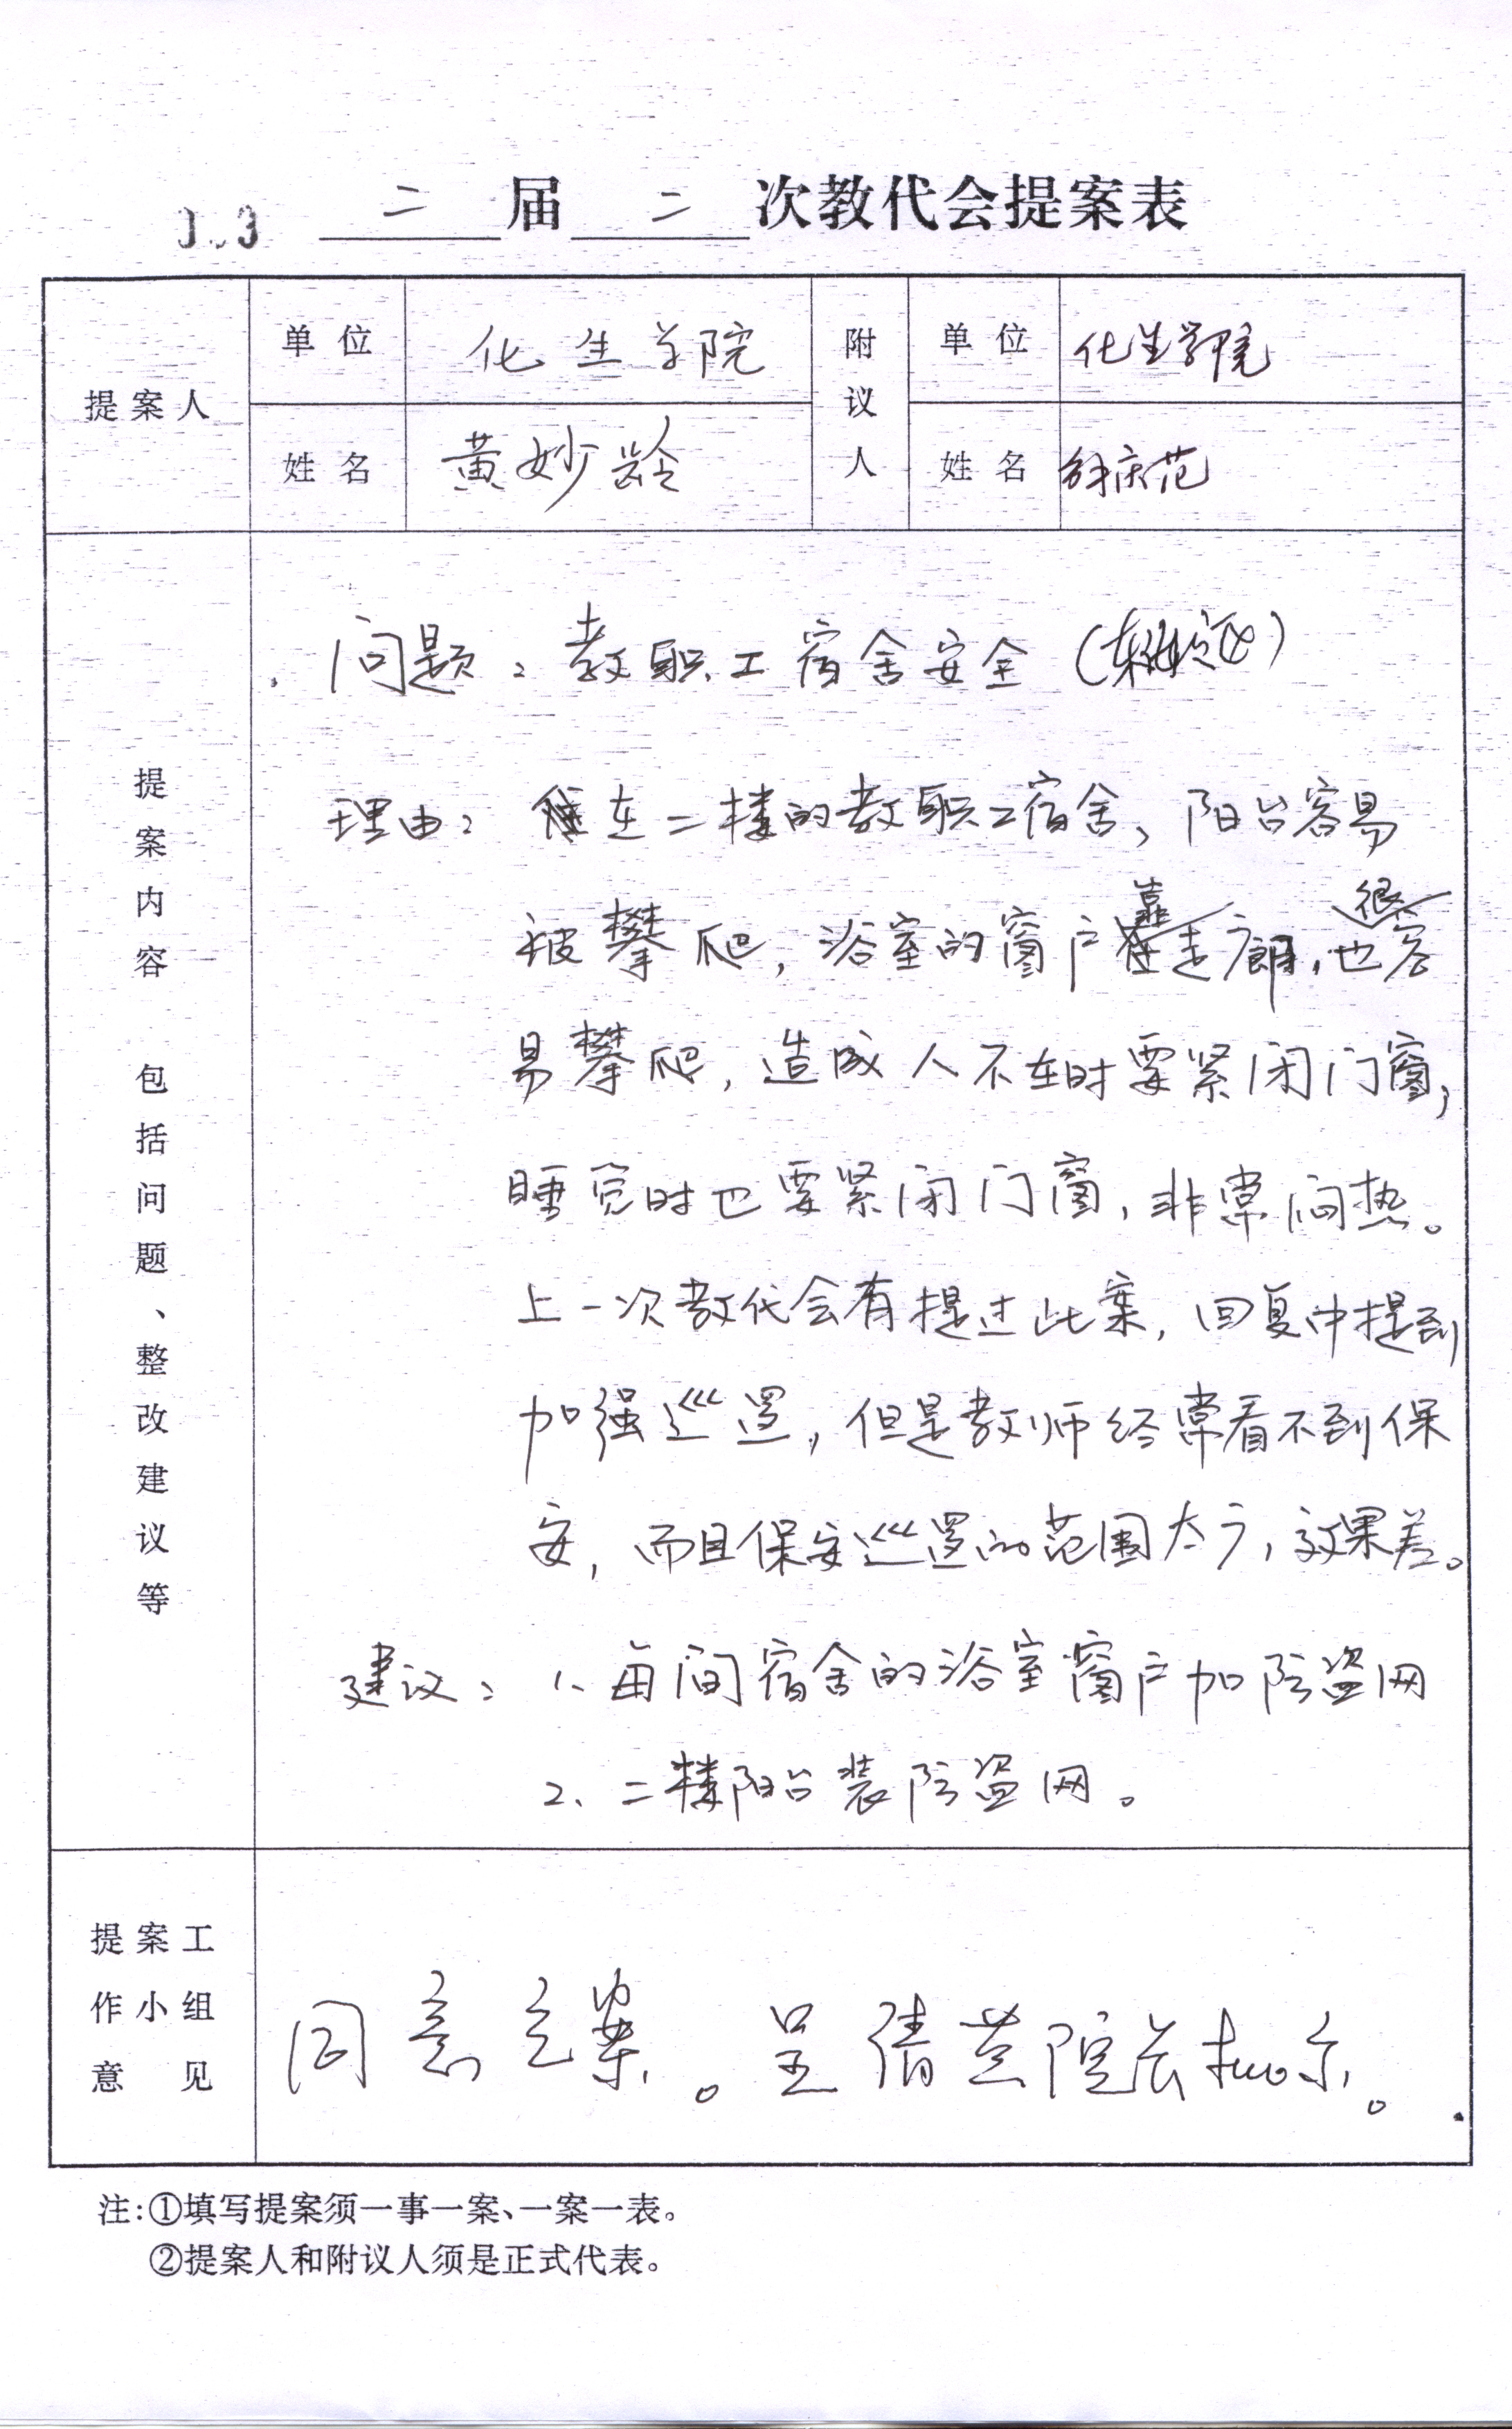 二届二次教代会提案表
提案人 单位 化生学院 附议人 单位 化生学院
姓名 黄妙龄 姓名 庆范
提案内容 包括问题、整改建议等
问题：教职工宿舍安全
理由：住在二楼的教职工宿舍，阳台容易
被攀爬，浴室的窗户靠走廊，也很容
易攀爬，造成人不在时要紧闭门窗，
睡觉时也要紧闭门窗，非常闷热。
上一次教代会有提过此案，回复中提到
加强巡逻，但是教师经常看不到保
安，而且保安巡逻的范围太广，效果差。
建议：1、每间宿舍的浴室窗户加防盗网
2、二楼阳台装防盗网。
提案工作小组意见
同意立案。呈请黄院长批示。
注:①填写提案须一事一案、一案一表。
②提案人和附议人须是正式代表。